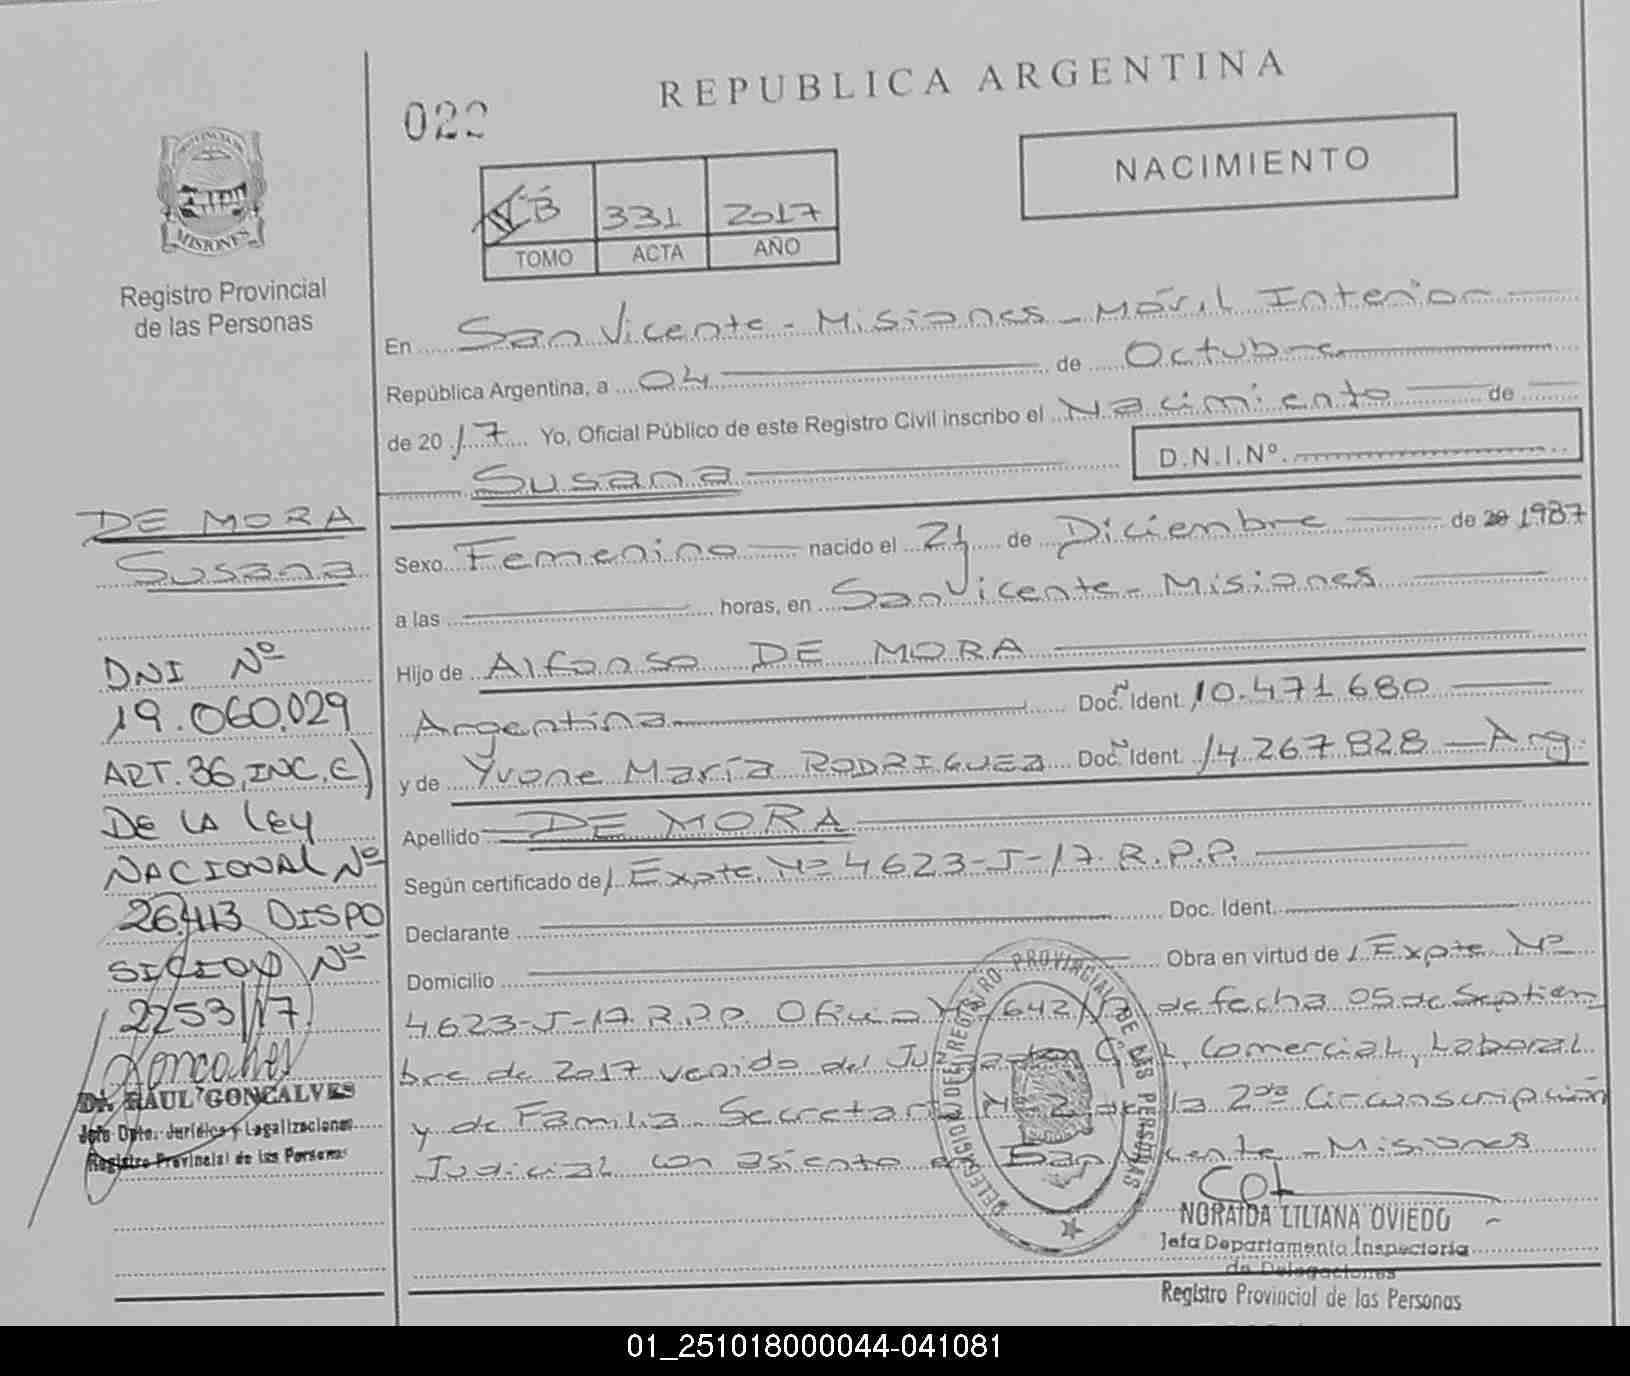 REPUBLICA ARGENTINA
022
NACIMIENTO
PROVINCIA DE
MISIONES
Registro Provincial
de las Personas
B 331 2017
TOMO ACTA AÑO
En San Vicente - Misiones - Móvil Interior
República Argentina, a 04 de Octubre
de 2017 Yo, Oficial Público de este Registro Civil inscribo el Nacimiento de
Susana D.N.I.Nº
Sexo Femenino nacido el 21 de Diciembre de 20 1987
a las horas, en San Vicente - Misiones
Hijo de Alfonso DE MORA
Argentina Doc. Ident. 10.471.680
y de Yvone María RODRIGUEZ Doc. Ident. 14.267.828 - Arg.
Apellido DE MORA
Según certificado de Expte. Nº 4623-J-17. R.P.P.
Declarante Doc. Ident.
Domicilio Obra en virtud de Expte. Nº
4.623-J-17. R.P.P. Oficio Nº 642/17 de fecha 05 de Septiem
bre de 2017 venido del Juzgado Civil, Comercial, Laboral
y de Familia Secretaría Nº 2 de la 2da Circunscripción
Judicial con asiento en San Vicente - Misiones
DE MORA
Susana
DNI Nº
19.060.029
ART. 36, INC. C)
DE LA LEY
NACIONAL Nº
26.413 DISPO
SICION Nº
2253/17.
Goncalves
Dr. RAUL GONCALVES
Jefe Dpto. Jurídico y Legalizaciones
Registro Provincial de las Personas
DELEGACION DEL REGISTRO PROVINCIAL DE LAS PERSONAS
NORAIDA LILIANA OVIEDO
Jefa Departamento Inspectoría
de Delegaciones
Registro Provincial de las Personas
01_251018000044-041081